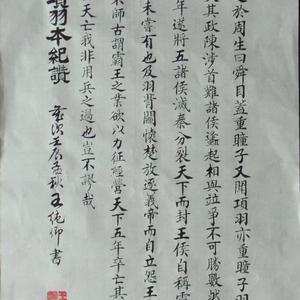 之於周生曰舜目蓋重瞳子又聞項羽亦重瞳子羽
其政陳涉首難諸侯蠭起相與竝爭不可勝數然
年遂將五諸侯滅秦分裂天下而封王侯自稱霸
未嘗有也及羽背關懷楚放逐義帝而自立怨王
不師古謂霸王之業欲以力征經營天下五年卒亡其
天亡我非用兵之過也豈不謬哉
項羽本紀讚 歲次壬辰孟秋王 仰書